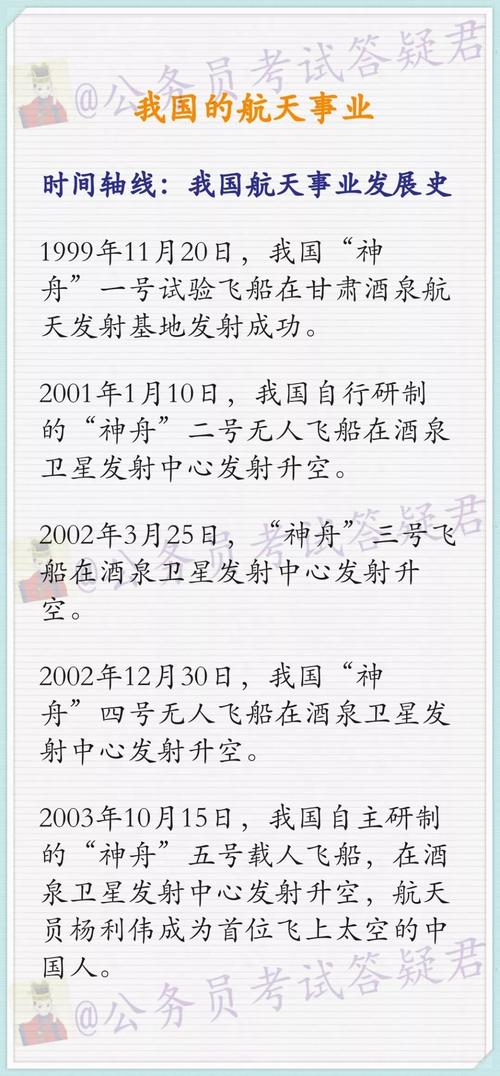 @公务员考试答疑君
我国的航天事业
时间轴线：我国航天事业发展史
1999年11月20日，我国“神
舟”一号试验飞船在甘肃酒泉航
天发射基地发射成功。
2001年1月10日，我国自行研制
的“神舟”二号无人飞船在酒泉
卫星发射中心发射升空。
@公务员考试答疑君
2002年3月25日，“神舟”三号飞
船在酒泉卫星发射中心发射升
空。
2002年12月30日，我国“神
舟”四号无人飞船在酒泉卫星发
射中心发射升空。
2003年10月15日，我国自主研制
的“神舟”五号载人飞船，在酒
泉卫星发射中心发射升空，航天
员杨利伟成为首位飞上太空的中
国人。
@公务员考试答疑君